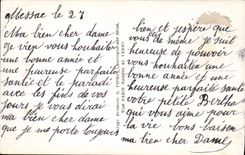 Messac le 27
Ma bien cher dame
Je vien vous souhaiter
une bonne année et
une heureuse parfaite
santé et le paradi
avec les fins de vos
jours je vous dirai
ma bien cher dame
que je me porte toujours
bien et j'espère que
vous de même je suit
heureuse de pouvoir
vous souhaite une
bonne année et une
heureuse parfaite santé
votre petite Bertha
qui vous aime pour
la vie vous laissan
ma bien cher Dame